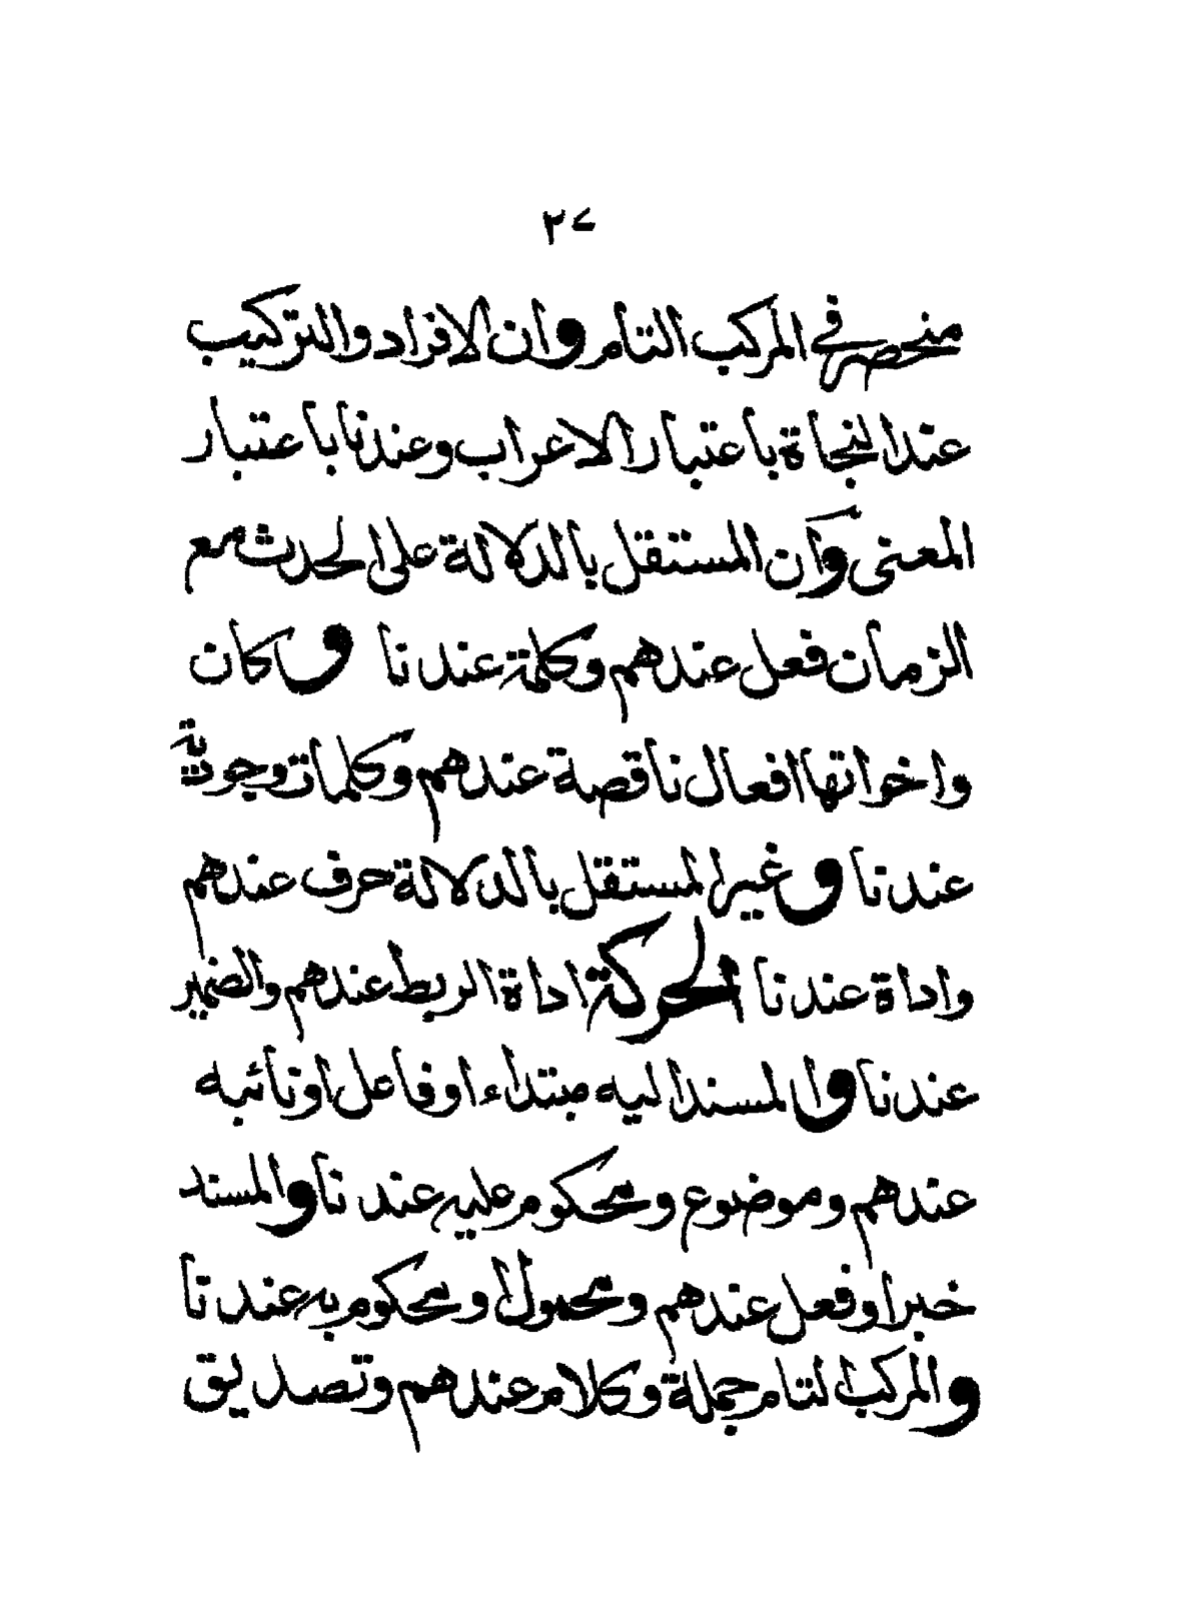 ٢٧
منحصر في المركب التام وان الافراد والتركيب
عند النحاة باعتبار الاعراب وعندنا باعتبار
المعنى وان المستقل بالدلالة على الحدث مع
الزمان فعل عندهم وكلمة عندنا وكان
واخواتها افعال ناقصة عندهم وكلمات وجودية
عندنا وغير المستقل بالدلالة حرف عندهم
واداة عندنا الحركة اداة الربط عندهم والضمير
عندنا والمسند اليه مبتداء او فاعل او نائبه
عندهم وموضوع ومحكوم عليه عندنا والمسند
خبر او فعل عندهم ومحمول او محكوم به عندنا
والمركب التام جملة وكلام عندهم وتصديق